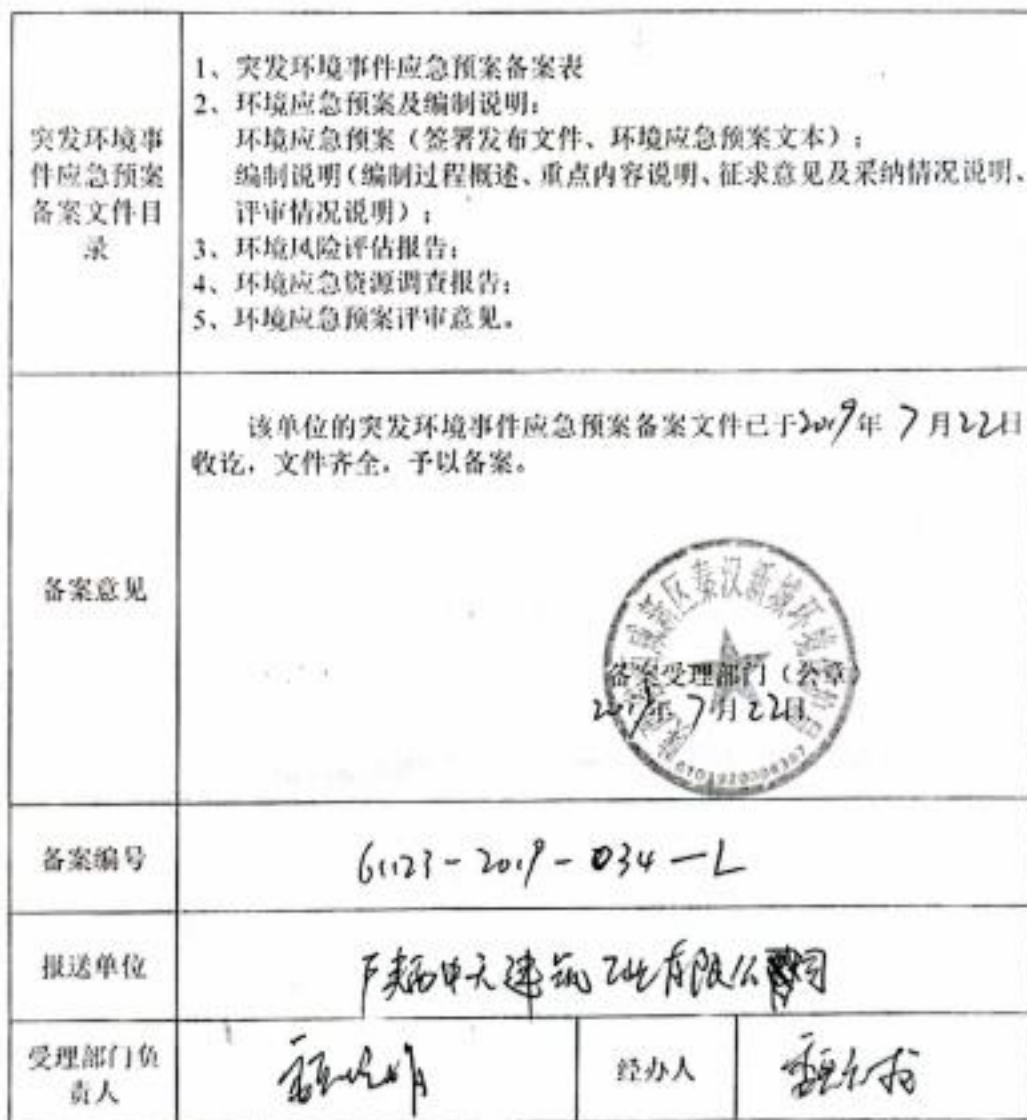 突发环境事
件应急预案
备案文件目
录
1、突发环境事件应急预案备案表
2、环境应急预案及编制说明；
环境应急预案（签署发布文件、环境应急预案文本）；
编制说明（编制过程概述、重点内容说明、征求意见及采纳情况说明、
评审情况说明）；
3、环境风险评估报告；
4、环境应急资源调查报告；
5、环境应急预案评审意见。
备案意见
该单位的突发环境事件应急预案备案文件已于2019年7月22日
收讫，文件齐全，予以备案。
新区秦汉新城环境
备案受理部门（公章）
2019年7月22日
备案编号
61123-2019-034-L
报送单位
陕西中天建筑工业有限公司
受理部门负
责人
经办人